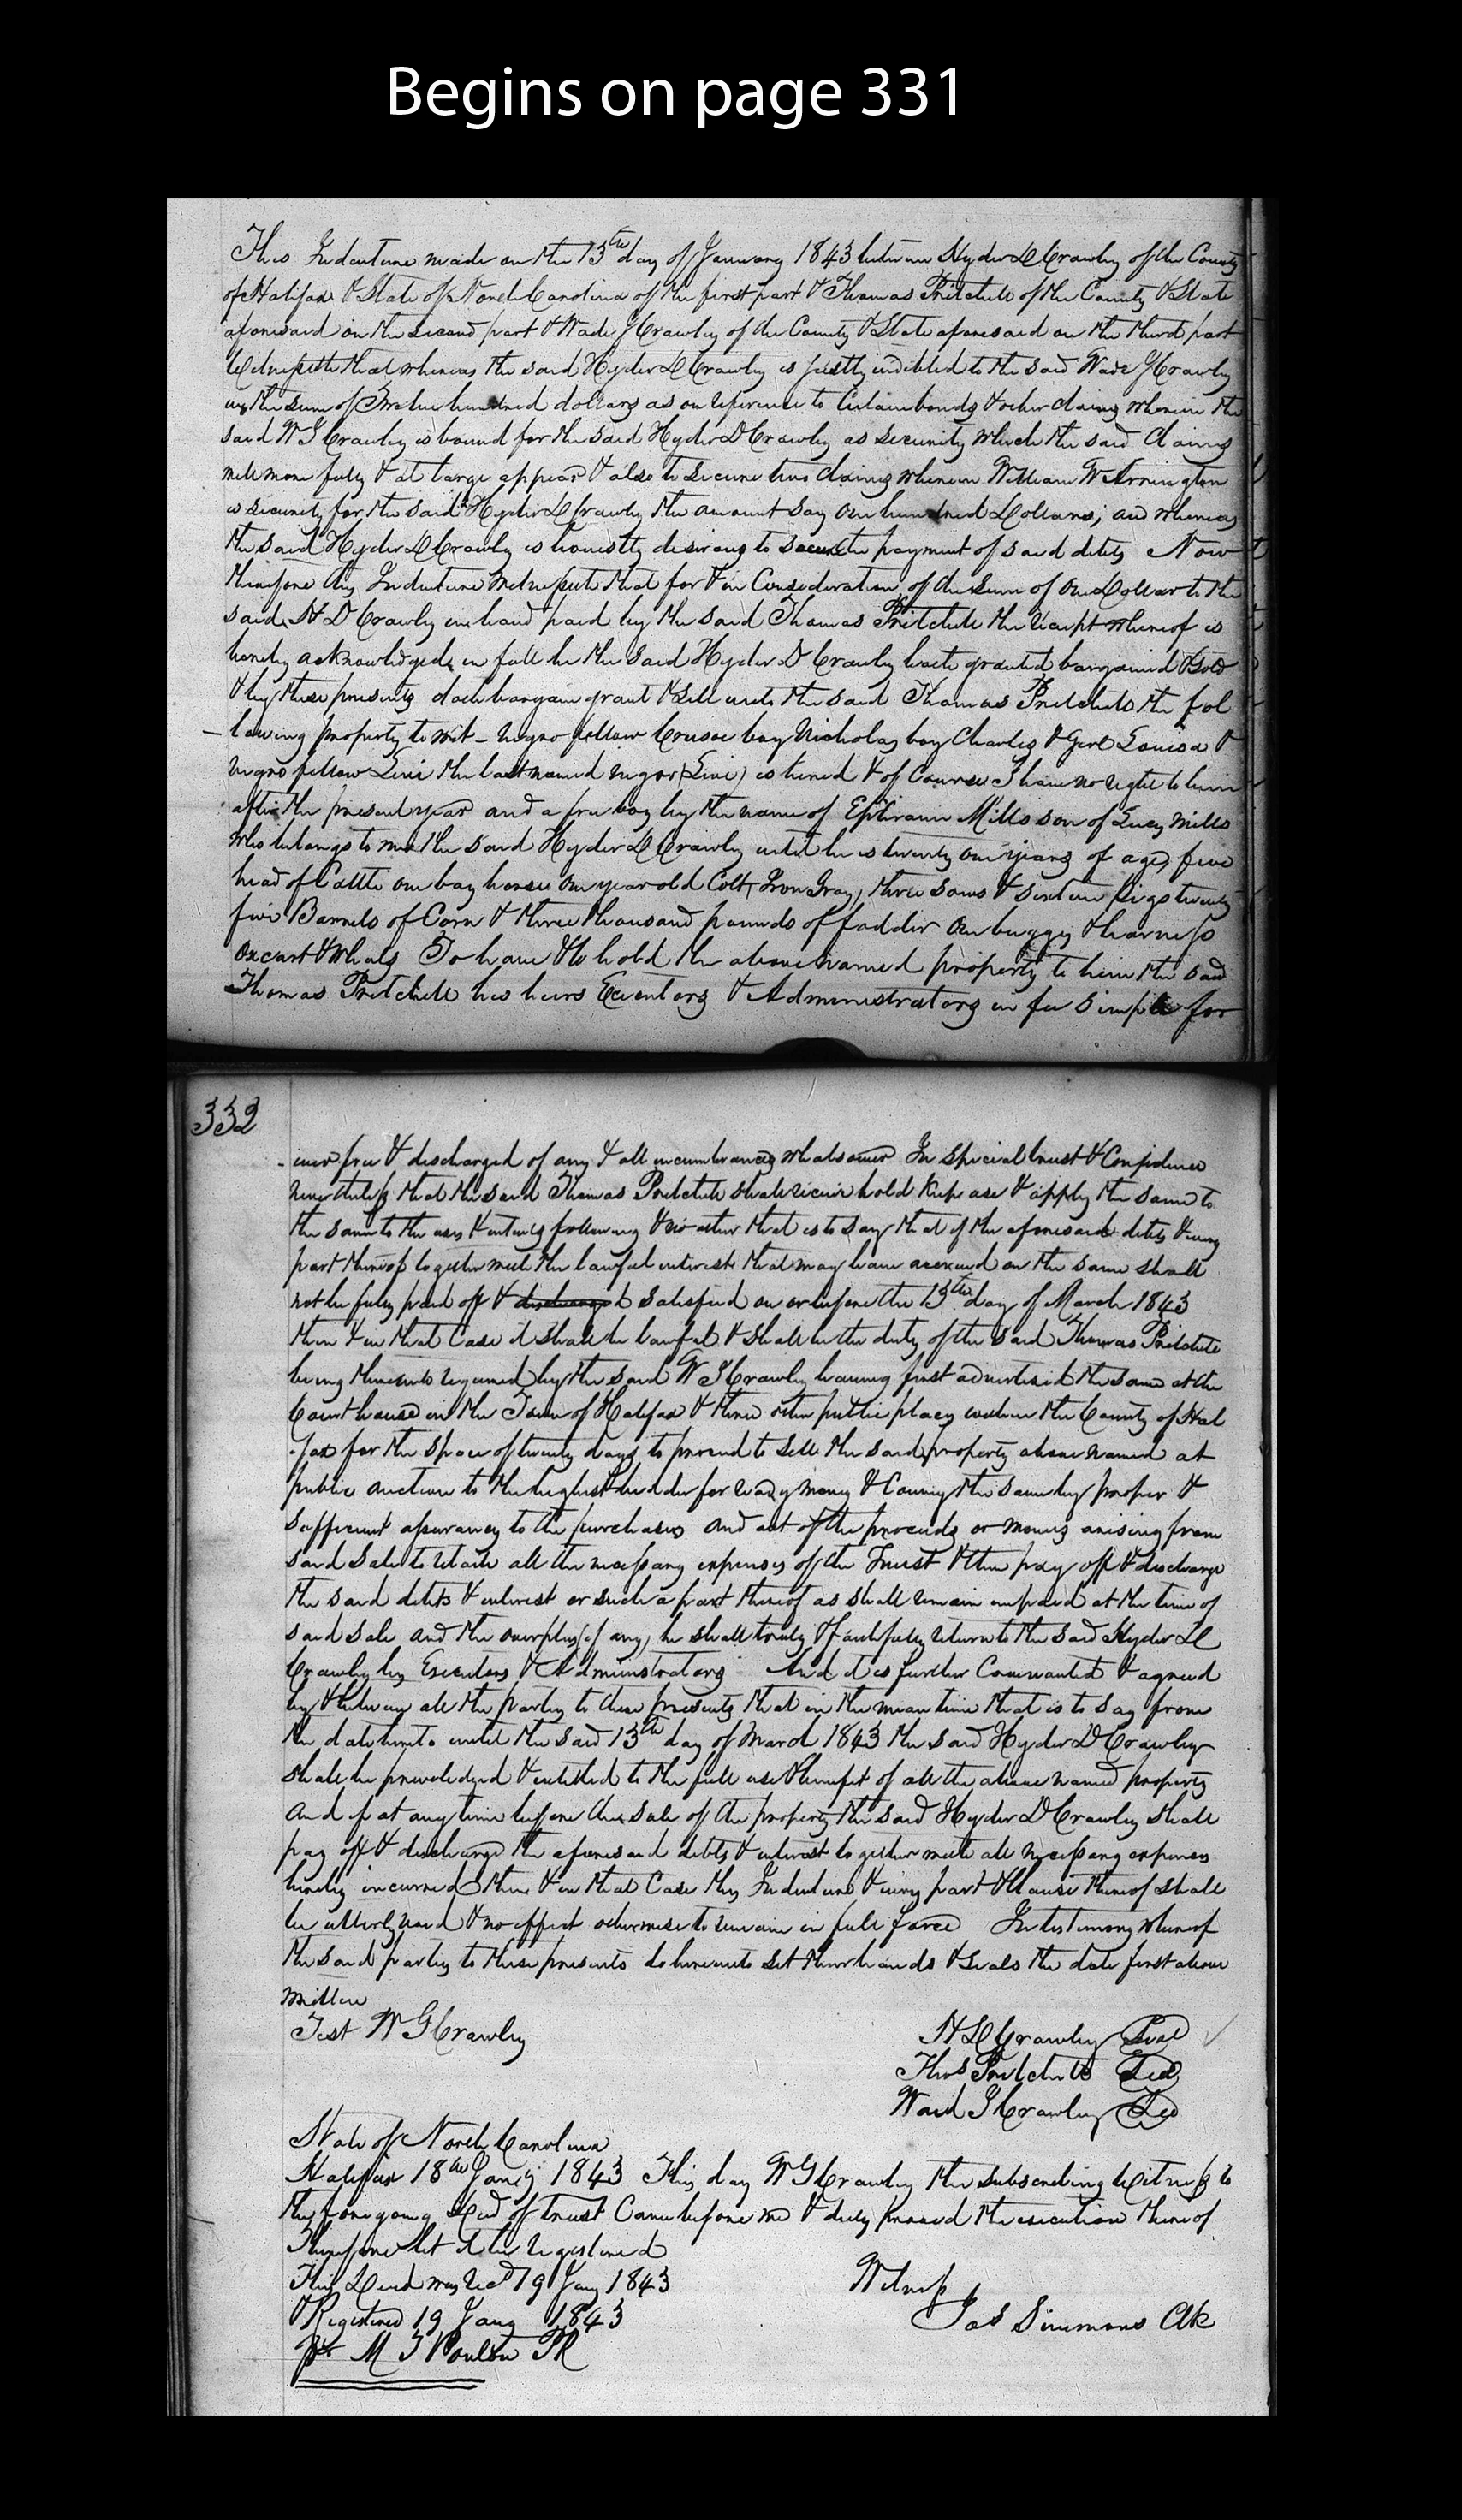 Begins on page 331
This Indenture made on the 13th day of January 1843 between Hyder D Crawley of the County
of Halifax & State of North Carolina of the first part & Thomas Pritchett of the County & State
aforesaid on the second part & Wade J Crawley of the County & State aforesaid on the third part
Witnesseth that whereas the said Hyder D Crawley is justly indebted to the said Wade J Crawley
in the sum of Twelve hundred dollars as on reference to Certain bonds & other claims wherein the
said W J Crawley is bound for the said Hyder D Crawley as security which the said Claims
will more fully & at large appear & also to secure two claims wherein William W Arrington
is security for the said Hyder D Crawley the amount say One hundred Dollars; and whereas
the said Hyder D Crawley is honestly desirous to secure the payment of said debts Now
therefore this Indenture Witnesseth that for & in Consideration of the sum of One Dollar to the
said H D Crawley in hand paid by the said Thomas Pritchett the receipt whereof is
hereby acknowledged, in full he the said Hyder D Crawley hath granted bargained & sold
& by these presents doth bargain grant & sell unto the said Thomas Pritchett the fol
lowing property to wit - negro fellow Crusoe boy Nicholas boy Charles & Girl Louisa &
negro fellow Levi the last named negro (Levi) is hired & of Course I have no right to him
after the present year and a free boy by the name of Ephraim Mills son of Lucy Mills
who belongs to me the said Hyder D Crawley until he is twenty one years of age, five
head of Cattle one bay horse One year old Colt (Iron Gray) three sows & sixteen pigs twenty
five Barrels of Corn & three thousand pounds of fodder One buggy & harness
Ox cart & whels To have & to hold the above named property to him the said
Thomas Pritchett his heirs Executors & Administrators in fee simple for
332
ever free & discharged of any & all incumbrances whatsoever In special trust & Confidence
nevertheless that the said Thomas Pritchett shall receive hold keep use & apply the same to
the same to the uses & intents following & no other that is to say that if the aforesaid debts & every
part thereof together with the lawful interest that may have accrued on the same shall
not be fully paid off & discharged satisfied on or before the 13th day of March 1843
then & in that Case it shall be lawful & shall be the duty of the said Thomas Pritchett
being thereunto required by the said W J Crawley having first advertised the same at the
Court house in the Town of Halifax & three other public places within the County of Hal
fax for the space of twenty days, to proceed to sell the said property above named at
public auction to the highest bidder for ready money & Convey the same by proper &
sufficient assurances to the purchasers and out of the proceeds or moneys arising from
said Sale to retain all the necessary expenses of the Trust & then pay off & discharge
the said debts & interest or such a part thereof as shall remain unpaid at the time of
said sale and the overplus (if any) he shall truly & faithfully return to the said Hyder D
Crawley his Executors & Administrators And it is further Covenanted & agreed
by & between all the parties to these presents that in the meantime that is to say from
the date hereto until the said 13th day of March 1843 the said Hyder D Crawley
shall be priveledged & entitled to the full use & benefit of all the above named property
And if at any time before the sale of the property the said Hyder D Crawley shall
pay off & discharge the aforesaid debts & interest together with all necessary expenses
hereby incurred then & in that Case this Indenture & every part & Clause thereof shall
be utterly void & no effect otherwise to remain in full force In testimony whereof
the said parties to these presents do hereunto set their hands & seals the date first above
written
Test W G Crawley
H D Crawley Seal
Thos Pritchett Seal
Waid J Crawley Seal
State of North Carolina
Halifax 18th Jany 1843 This day W G Crawley the subscribing Witness to
the foregoing Deed of trust Came before me & duly proved the execution thereof
Therefore let it be registered
This Deed was Recd 19 Jany 1843
Witness
& Registered 19 Jany 1843
Jas Simmons Clk
pr M T Poulton PR